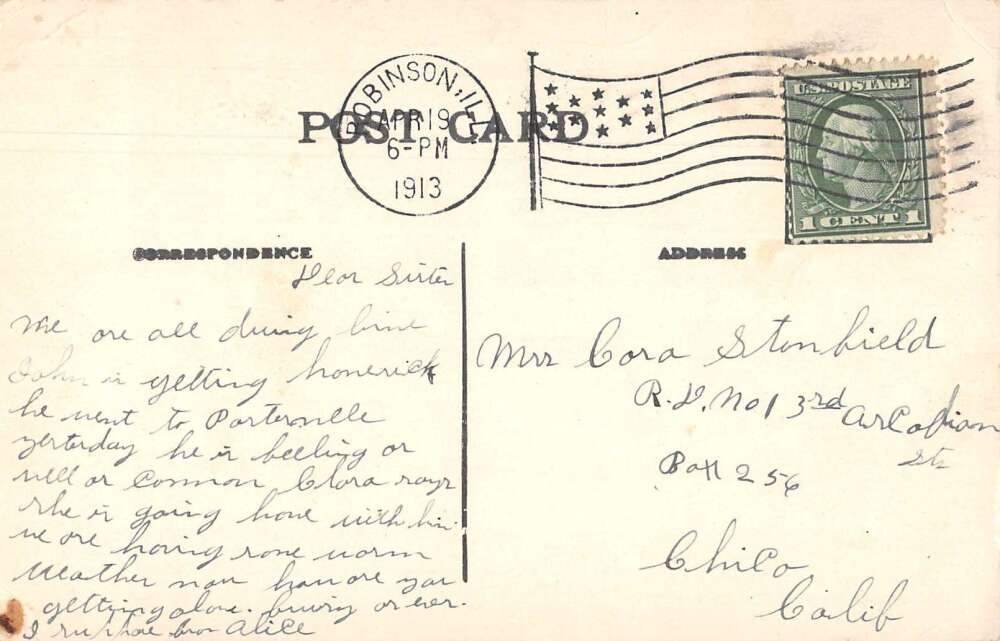 ROBINSON, ILL.
APR 19
6-PM
1913
U.S. POSTAGE
1 CENT 1
POST CARD
CORRESPONDENCE
ADDRESS
Dear Sister
We are all doing fine
John is getting homesick
he went to Porterville
yesterday he is feeling as
well as common Clora says
she is going home with him
we are having some warm
weather now how are you
getting along. as ever.
I from Alice
Mrs Cora Stanfield
R.D. No 1 3rd Arcadian
St
Box 256
Chico
Calif